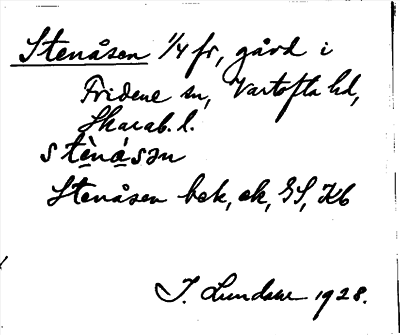 Stenåsen 1/4 fr, gård i
Fridene sn, Vartofta hd,
Skarab. l.
stènásən
Stenåsen bek, ek, GS, Kb
J. Lundahl 1928.